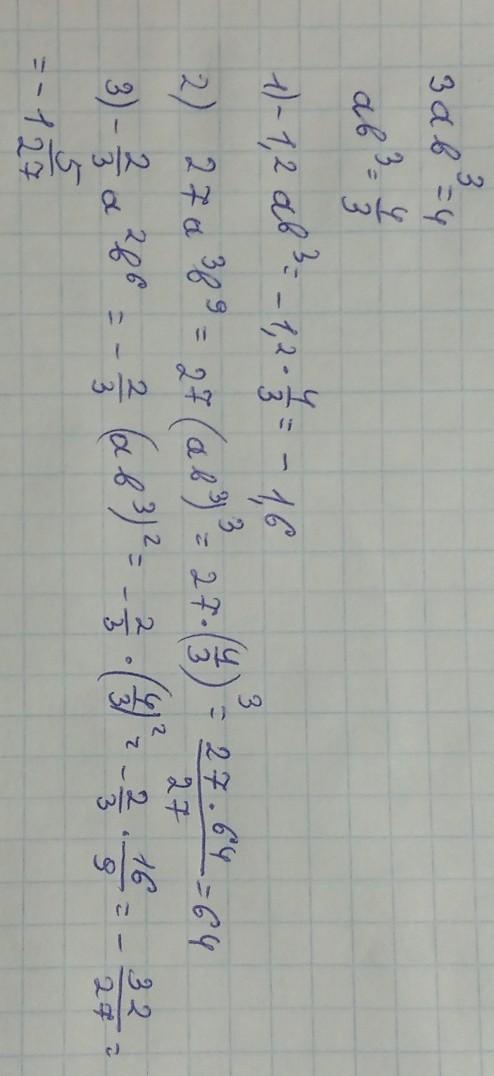 3ab³=4
ab³=4/3
1) -1,2ab³= -1,2·4/3= -1,6
2) 27a³b⁹=27(ab³)³=27·(4/3)³=27·64/27=64
3) -2/3a²b⁶=-2/3(ab³)²=-2/3·(4/3)²=-2/3·16/9=-32/27=
=-1 5/27